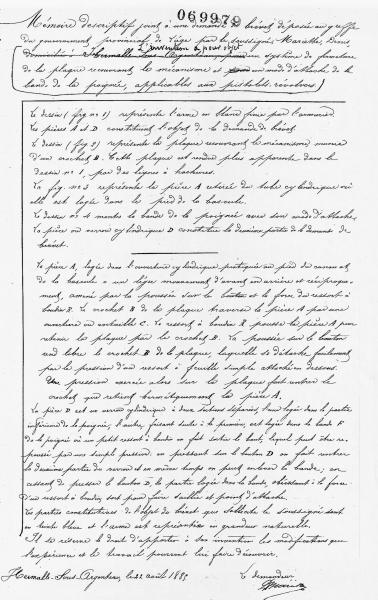 069979
Mémoire descriptif joint à une demande de brevet déposée au greffe
du gouvernement provincial de Liége par le soussigné Mariette, Denis
L'invention a pour objet
domicilié à Hermalle-Sous-Argenteau un système de fermeture
de la plaque recouvrant le mécanisme et un mode d'attache de la
bande de la poignée, applicables aux pistolets révolvers
Le dessin (fig n° 1) représente l'arme en blanc finie par l'armurier
Les pièces A et D constituent l'objet de la demande de brevet.
Le dessin (fig 2) représente la plaque recouvrant le mécanisme munie
d'un crochet B. Cette plaque est rendue plus apparente dans le
dessin n° 1, par des lignes à hachures.
La fig. n° 3 représente la pièce A retirée du tube cylindrique où
elle est logée dans le pied de la bascule.
Le dessin n° 4 montre la bande de la poignée avec son mode d'attache.
La pièce ou verrou cylindrique D constitue la deuxième partie de la demande de
brevet.
La pièce A, logée dans l'ouverture cylindrique pratiquée au pied du canon ou
de la bascule a un léger mouvement d'avant en arrière et réciproque-
ment, amené par la poussée sur le bouton et la force du ressort à
boudin R. Le crochet B de la plaque traverse la pièce A par une
ouverture ou entaille C. Le ressort à boudin R pousse la pièce A pour
retenir la plaque par le crochet B. La poussée sur le bouton
rend libre le crochet B de la plaque, laquelle se détache facilement
par la pression d'un ressort à feuille simple attaché en dessous.
Une pression exercée alors sur la plaque fait rentrer le
crochet que retient hermétiquement la pièce A.
La pièce D est un verrou cylindrique à deux sections séparées l'une logée dans la partie
inférieure de la poignée, l'autre, faisant suite à la première, est logée dans la bande F
de la poignée où un petit ressort à boudin en fait sortir le bout, lequel peut être re-
poussé par une simple pression en pressant sur le bouton D on fait rentrer
la deuxième partie du verrou et en même temps on peut enlever la bande; en
cessant de presser le bouton D, la partie logée dans la bande, obéissant à la force
d'un ressort à boudin, sort pour faire saillie et point d'attache.
Les parties constitutives de l'objet du brevet que sollicite le soussigné sont
en teinte bleue et l'arme est représentée en grandeur naturelle.
Il se réserve le droit d'apporter à son invention les modifications que
l'expérience et le travail pourront lui faire découvrir.
Hermalle-Sous-Argenteau, le 22 août 1885
Le demandeur